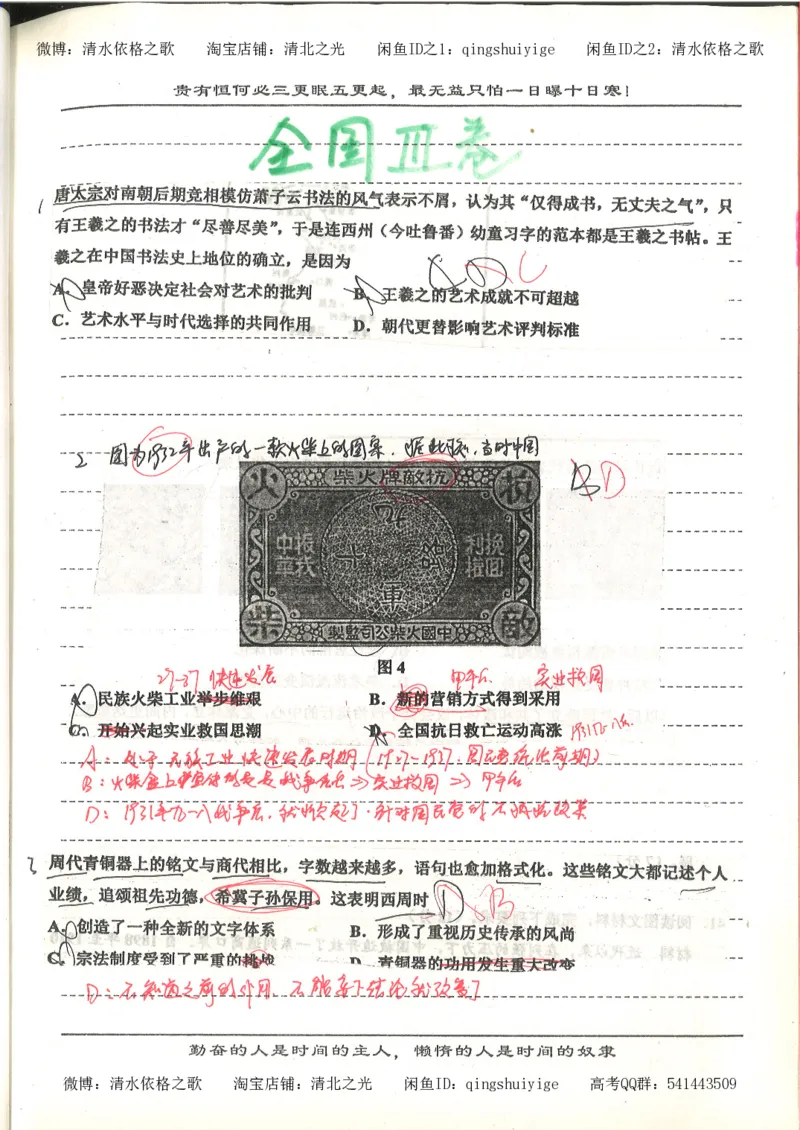 微博：清水依格之歌 淘宝店铺：清北之光 闲鱼ID之1：qingshuiyige 闲鱼ID之2：清水依格之歌
贵有恒何必三更眠五更起，最无益只怕一日曝十日寒！
全国Ⅲ卷
1 唐太宗对南朝后期竞相模仿萧子云书法的风气表示不屑，认为其“仅得成书，无丈夫之气”，只
有王羲之的书法才“尽善尽美”，于是连西州（今吐鲁番）幼童习字的范本都是王羲之书帖。王
羲之在中国书法史上地位的确立，是因为
A．皇帝好恶决定社会对艺术的批判 B．王羲之的艺术成就不可超越
C．艺术水平与时代选择的共同作用 D．朝代更替影响艺术评判标准
2 图为1932年出产的一款火柴上的图案．据此，当时中国
B D
柴火牌敵抗
火 抗
中振 利挽
華我 權回
柴 敵
製監司公柴火國中
图 4
27-37 快速发展 甲午后 实业救国
A．民族火柴工业举步维艰 B．新的营销方式得到采用
C．开始兴起实业救国思潮 D．全国抗日救亡运动高涨
A：处于民族工业快速发展时期（1927-1937．国民党统治前期）
3 周代青铜器上的铭文与商代相比，字数越来越多，语句也愈加格式化。这些铭文大都记述个人
业绩，追颂祖先功德，希冀子孙保用。这表明西周时 D B
A．创造了一种全新的文字体系 B．形成了重视历史传承的风尚
C．宗法制度受到了严重的挑战 D．青铜器的功用发生重大改变
勤奋的人是时间的主人，懒惰的人是时间的奴隶
微博：清水依格之歌 淘宝店铺：清北之光 闲鱼ID：qingshuiyige 高考QQ群：541443509